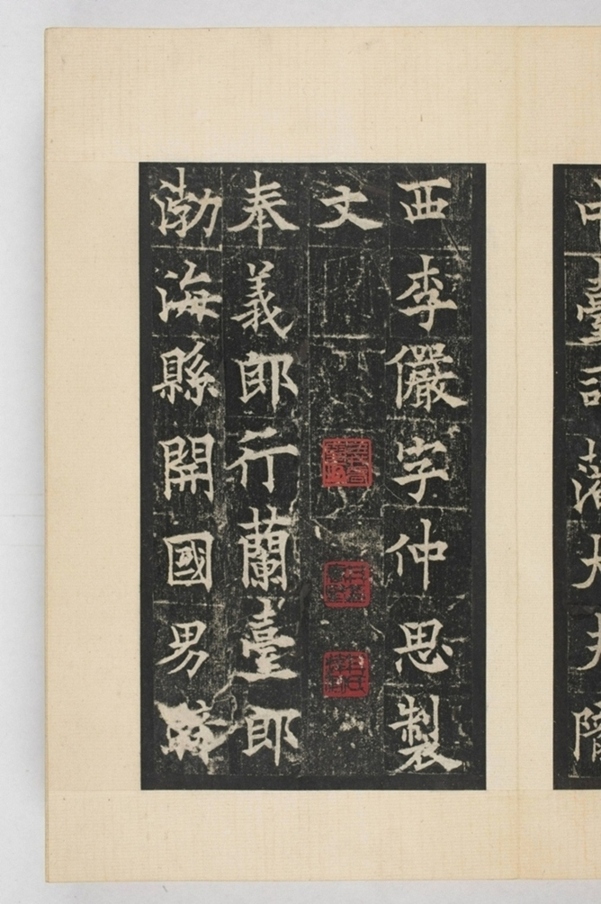 西李儼字仲思製
文
奉義郎行蘭臺郎
渤海縣開國男